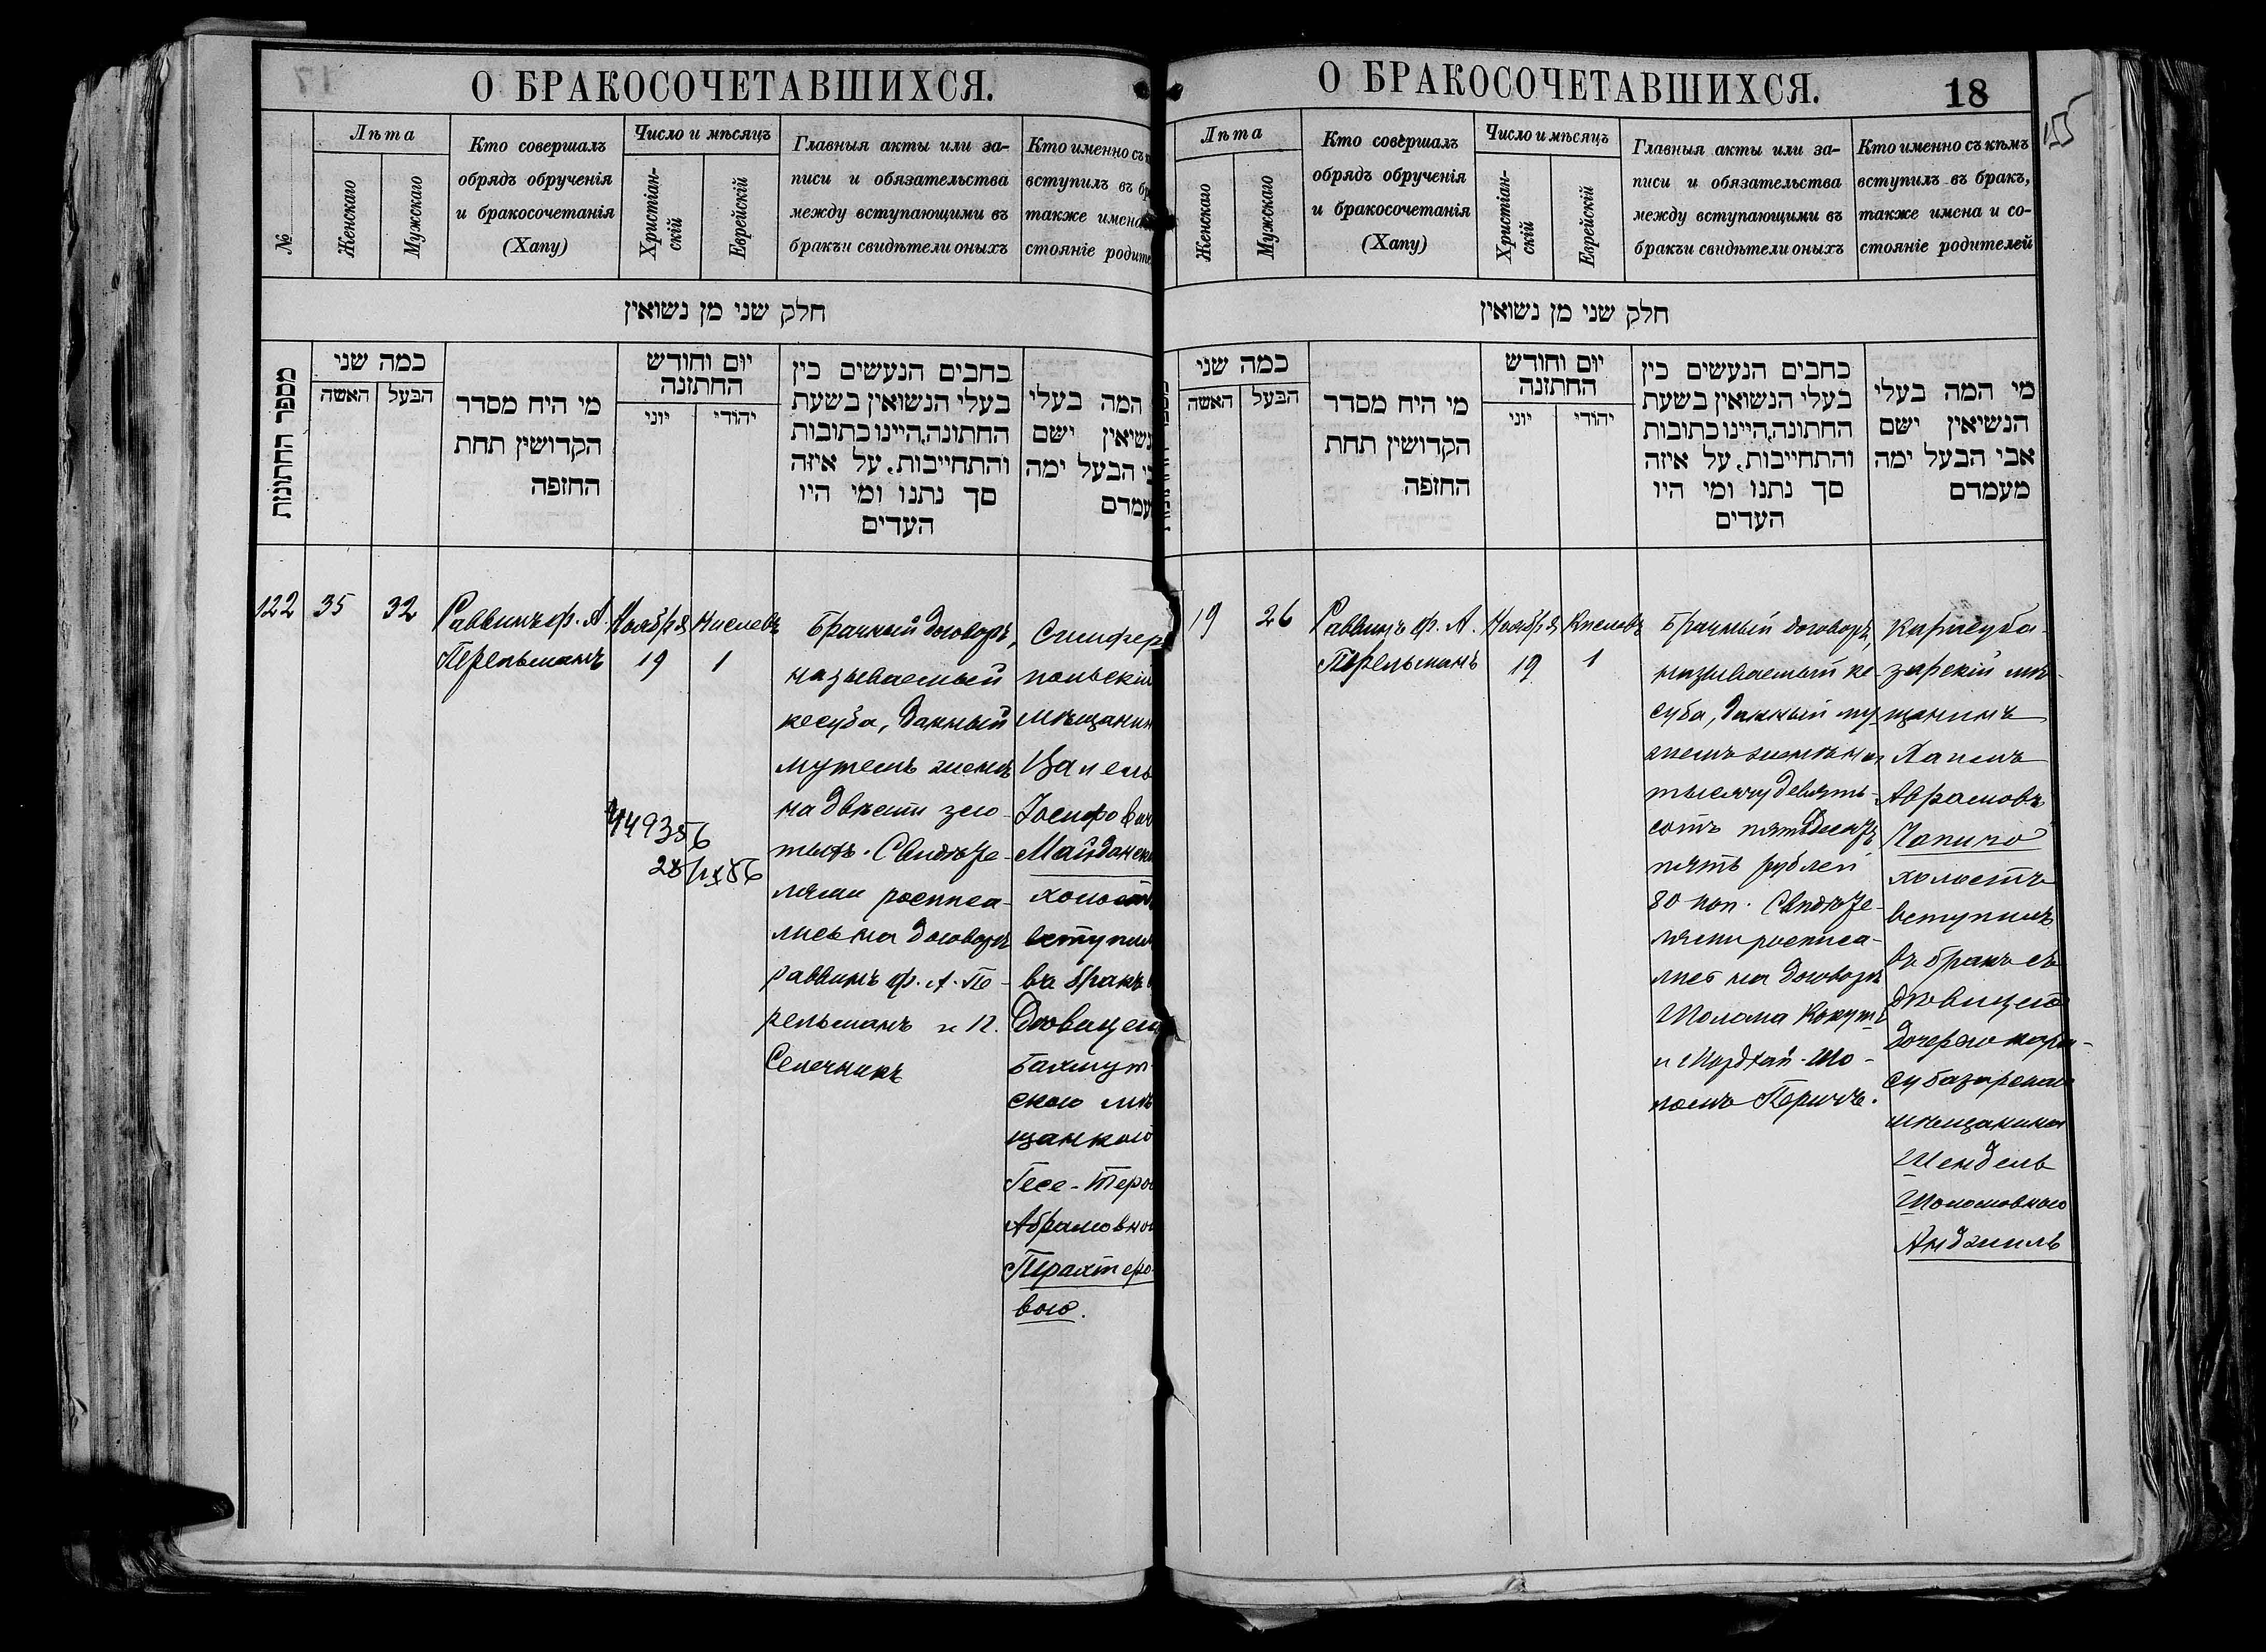 О БРАКОСОЧЕТАВШИХСЯ.
№
Лѣта
Женскаго
Мужскаго
Кто совершалъ
обрядъ обрученія
и бракосочетанія
(Хапу)
Число и мѣсяцъ
Христіан-
скій
Еврейскій
Главныя акты или за-
писи и обязательства
между вступающими въ
бракъи свидѣтели оныхъ
Кто именно съ
вступилъ въ
также имена
стояніе
חלק שני מן נשואין
מספר החתונות
כמה שני
האשה
הבעל
מי היח מסדר
הקדושין תחת
החופה
יום וחודש
החתונה
יוני
יהודי
בחבים הנעשים בין
בעלי הנשואין בשעת
החתונה,היינו כתובות
והתחייבות, על איזה
סך נתנו ומי היו
העדים
המה בעלי
ישם
הבעל ימה
122
35
32
Раввинъ ф. А.
Перельманъ
Ноября
19
Кислевъ
1
449356
28/IX 56
Брачный договоръ,
называемый
кесуба, данный
мужемъ женѣ
на двѣсти зло-
тыхъ. Свидѣте-
лями росписа-
лись на договорѣ
раввинъ ф. А. Пе-
рельманъ и П.
Селечникъ
Симферо
польскій
мѣщанин
Цалель
Іосифович
Майданск
холостъ
вступил
въ бракъ
Дѣвицею
Бахмут-
скою мѣ
щанкою
Гесе-
Абрамовно
Прахтеро-
вою.
О БРАКОСОЧЕТАВШИХСЯ.
18
155
Лѣта
Женскаго
Мужскаго
Кто совершалъ
обрядъ обрученія
и бракосочетанія
(Хапу)
Число и мѣсяцъ
Христіан-
скій
Еврейскій
Главныя акты или за-
писи и обязательства
между вступающими въ
бракъи свидѣтели оныхъ
Кто именно съ кѣмъ
вступилъ въ бракъ,
также имена и со-
стояніе родителей
חלק שני מן נשואין
כמה שני
האשה
הבעל
מי היח מסדר
הקדושין תחת
החופה
יום וחודש
החתונה
יוני
יהודי
כחבים הנעשים בין
בעלי הנשואין בשעת
החתונה,היינו כתובות
והתחייבות, על איזה
סך נתנו ומי היו
העדים
מי המה בעלי
הנשיאין ישם
אבי הבעל ימה
מעמדם
19
26
Раввинъ ф. А.
Перельманъ
Ноября
19
Кислевъ
1
Брачный договоръ,
называемый ке-
суба, данный му-
жемъ женѣ на
тысячу девять-
сотъ пятьдесятъ
пять рублей
80 коп. Свидѣте-
лями росписа-
лись на договорѣ
Шолома
и Мордхай-Шо-
ломъ Перичъ.
Карасуба-
зарскій мѣ-
щанинъ
Хаимъ
Абрамовъ
холостъ
вступилъ
въ бракъ съ
дѣвицею
дочерью кара-
субазарскаго
мѣщанина
Шендель
Шоломовною
Анджиль